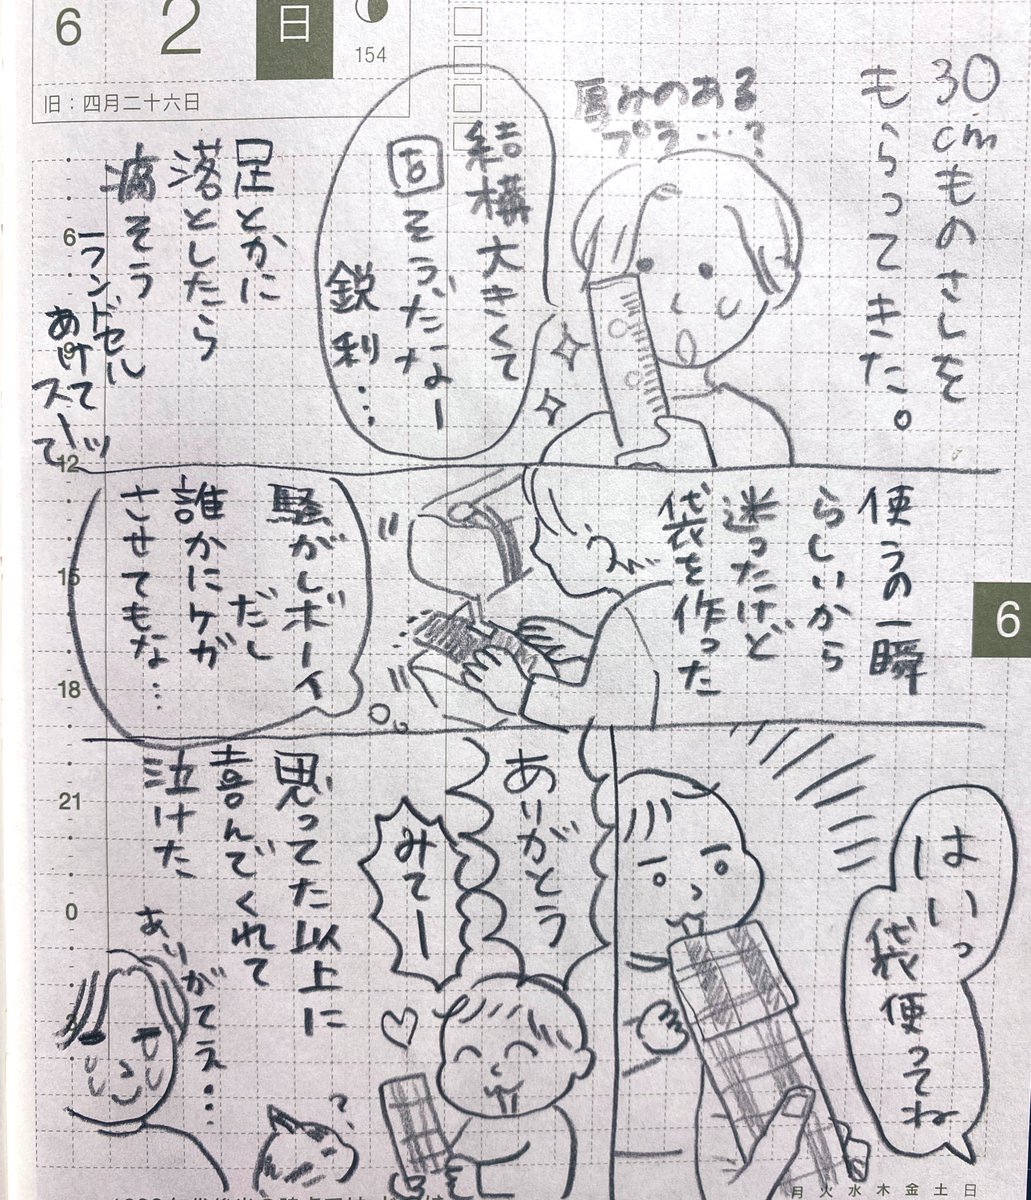 6
2
日
154
旧：四月二十六日
30
cmものさしを
もらってきた。
厚みのある
プラ…？
結構大きくて
固そうだなー
鋭利…
足とかに
落としたら
痛そう
ランドセル
あけて
スーッて
6
9
12
使うの一瞬
らしいから
迷ったけど
袋を作った
騒がしボーイ
だし
誰かにケガ
させてもな…
15
18
6
はいっ
袋使ってね
ありがとう
みてー
思ってた以上に
喜んでくれて
泣けた
ありがてぇ…
?
21
0
3
月 火 水 木 金 土 日